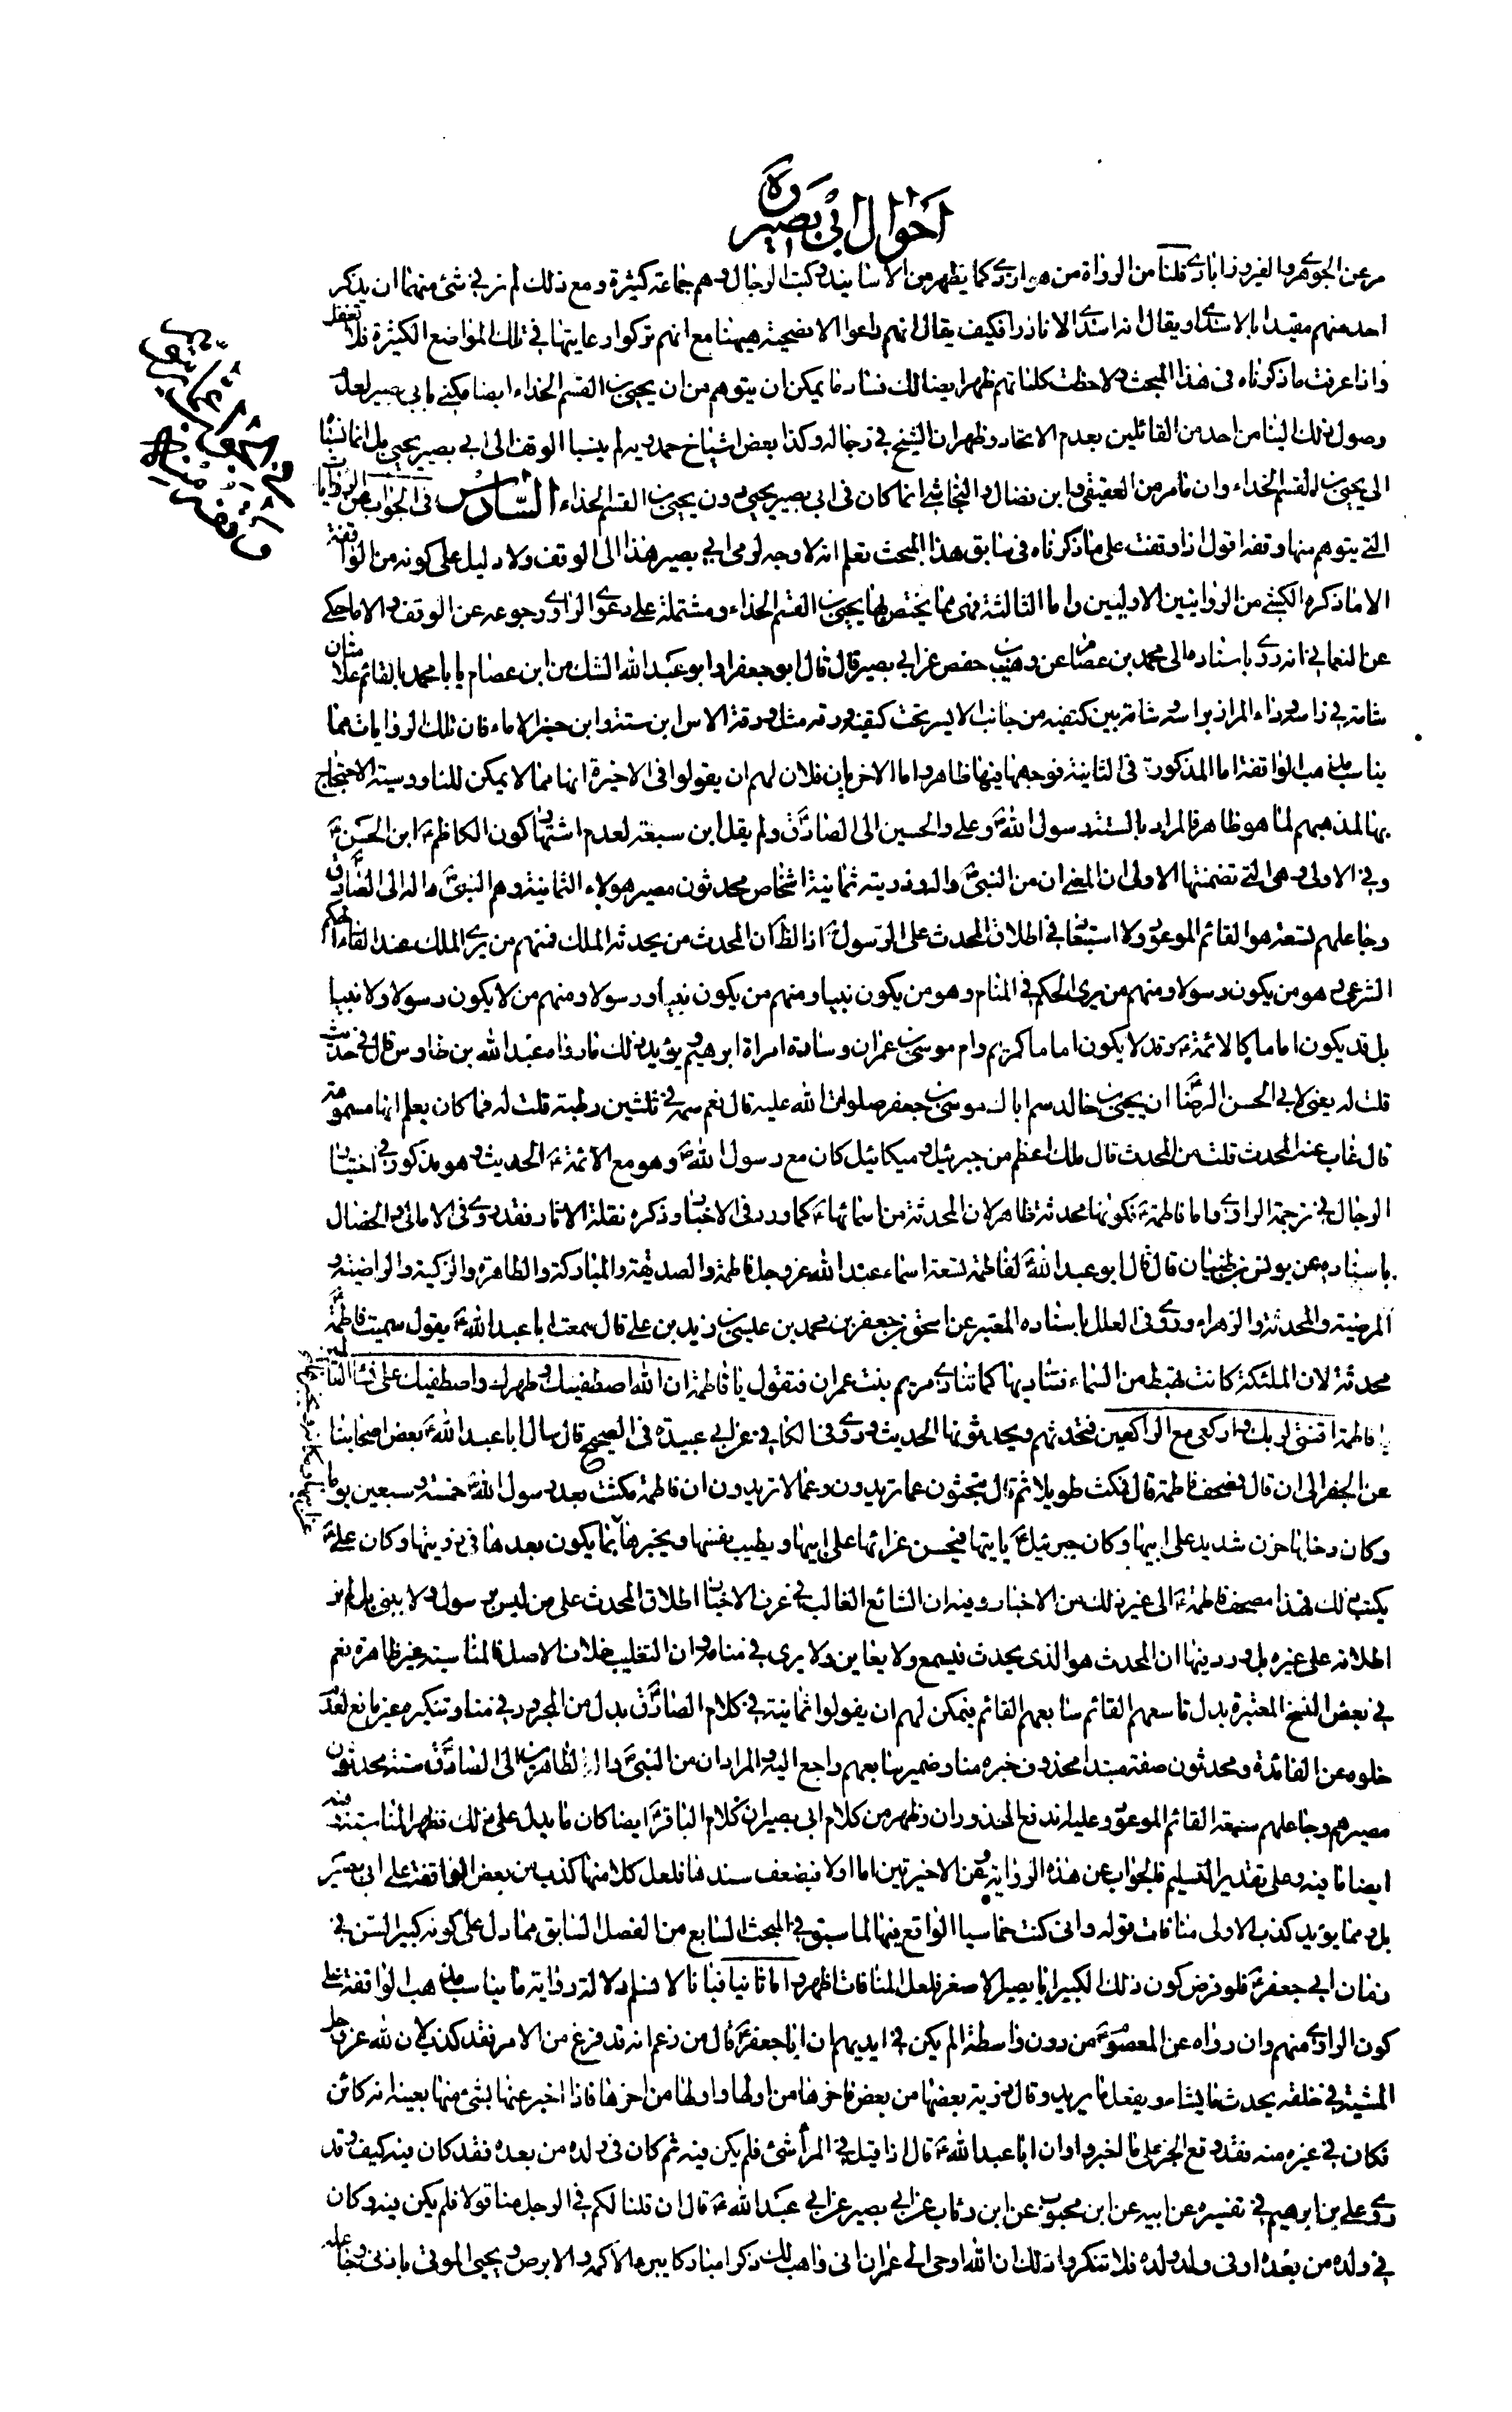 احوال ابی بصیر ره
مر عن الجوهری والفیروزابادی قلنا من الرواة من هو ازدی کما یظهر من الاسانید و کتب الرجال و هم جماعة کثیرة و مع ذلک لم نر فی شئ منهما ان یذکر
احد منهم مقیدا بالاسدی او یقال انه اسدی الا نادرا فکیف یقال انهم راعوا الافصحیة هیهنا مع انهم ترکوا رعایتها فی تلک المواضع الکثیرة فلا تغفل
و اذا عرفت ما ذکرناه فی هذا المبحث و لاحظت کلماتهم ظهر ایضا لک فساد ما یمکن ان یتوهم من ان یحیی بن القسم الحذاء ایضا مکنی بابی بصیر لعدم
وصول ذلک الینا من احد من القائلین بعدم الاتحاد و ظهر ان الشیخ فی رجاله و کذا بعض اشیاخ حمدویه لم ینسبا الوقف الی ابی بصیر یحیی بل انما نسبا
الی یحیی بن القسم الحذاء و ان ما مر من العقیقی و ابن فضال و النجاشی انما کان فی ابی بصیر یحیی دون یحیی بن القسم الحذاء السادس فی الجواب عن الروایات
التی یتوهم منها وقفه اقول اذا وقفت علی ما ذکرناه فی سابق هذا المبحث تعلم انه لا وجه لرمی ابی بصیر هذا الی الوقف و لا دلیل علی کونه من الواقفة
الا ما ذکره الکشی من الروایتین الاولیین و اما الثالثة فهی مما یختص بها یحیی بن القسم الحذاء و مشتملة علی دعوی الراوی رجوعه عن الوقف و الا ما حکی
عن النعمانی انه روی باسناده الی محمد بن عصام عن وهیب بن حفص عن ابی بصیر قال قال ابو جعفر او ابو عبد الله الشک من ابن عصام یا با محمد بالقائم علامتان
شامة فی راسه و داء الحزاز براسه و شامة بین کتفیه من جانب الایسر تحت کتفیه ورقة مثل ورقة الاس ابن ستة و ابن خیر الاماء فان تلک الروایات مما
یناسب مذهب الواقفة اما المذکورة فی الثانیة فوجهها فیها ظاهر و اما الاخریان فلان لهم ان یقولوا فی الاخیرة انها مما لا یمکن للناووسیة الاحتجاج
بها لمذهبهم لما هو ظاهر فالمراد بالستة رسول الله ص و علی و الحسین الی الصادق و لم یقل ابن سبعة لعدم اشتهار کون الکاظم ابن الحسن
و فی الاولی و هی التی تضمنتها الاولی ان المعنی ان من النبی و اله و ذریته ثمانیة اشخاص محدثون مصیر هولاء الثمانیة و هم النبی و اله الی الصادق
و جاعلهم تسعة هو القائم الموعود و لا استبعاد فی اطلاق المحدث علی الرسول اذ الظ ان المحدث من یحدثه الملک فمنهم من یری الملک عند القاء الحکم
الشرعی و هو من یکون رسولا و منهم من یری الحکم فی المنام و هو من یکون نبیا و منهم من یکون نبیا و رسولا و منهم من لا یکون رسولا و لا نبیا
بل قد یکون اماما کالائمة و قد لا یکون اماما کمریم و ام موسی بن عمران و سارة امراة ابرهیم و یؤید ذلک ما رواه عبد الله بن طاوس قال فی حدیث
قلت له یعنی لابی الحسن الرضا ان یحیی بن خالد سم اباک موسی بن جعفر صلوات الله علیه قال نعم سمه فی ثلثین رطبة قلت له فما کان یعلم انها مسمومة
قال غاب عنه المحدث قلت من المحدث قال ملک اعظم من جبرئیل و میکائیل کان مع رسول الله و هو مع الائمة الحدیث و هو مذکور فی اختیار
الرجال فی ترجمة الراوی و اما فاطمة فکونها محدثة ظاهر لان المحدثة من اسمائها کما ورد فی الاخبار و ذکره نقلة الاثار فقد روی فی الامالی و الخصال
باسناده عن یونس بن ظبیان قال قال ابو عبد الله لفاطمة تسعة اسماء عند الله عز و جل فاطمة و الصدیقة و المبارکة و الطاهرة و الزکیة و الراضیة و
المرضیة و المحدثة و الزهراء و روی فی العلل باسناده المعتبر عن اسحق بن جعفر بن محمد بن عیسی بن زید بن علی قال سمعت ابا عبد الله یقول سمیت فاطمة
محدثة لان الملئکة کانت تهبط من السماء فتنادیها کما تنادی مریم بنت عمران فتقول یا فاطمة ان الله اصطفیک و طهرک و اصطفیک علی نساء العالمین
یا فاطمة اقنتی لربک و ارکعی مع الراکعین فتحدثهم و یحدثونها الحدیث و روی فی الکافی عن ابی عبیدة فی الصحیح قال سال ابا عبد الله بعض اصحابنا
عن الجفر الی ان قال فمصحف فاطمة قال فسکت طویلا ثم قال تبحثون عما تریدون و عما لا تریدون ان فاطمة مکثت بعد رسول الله خمسة و سبعین یوما
و کان دخلها حزن شدید علی ابیها و کان جبرئیل یاتیها فیحسن عزائها علی ابیها و یطیب نفسها و یخبرها بما یکون بعدها فی ذریتها و کان علی
یکتب ذلک فهذا مصحف فاطمة الی غیر ذلک من الاخبار و فیه ان الشائع الغالب فی عرف الاخبار اطلاق المحدث علی من لیس برسول و لا بنبی بل لم نر
اطلاقه علی غیره بل ورد فیها ان المحدث هو الذی یحدث فیسمع و لا یعاین و لا یری فی منامه و ان التغلیب خلاف الاصل فالمناسبة غیر ظاهرة نعم
فی بعض النسخ المعتبرة بدل تاسعهم القائم سابعهم القائم فیمکن لهم ان یقولوا ثمانیة فی کلام الصادق بدل من المجرور فی منا و تنکیره غیر مانع لعدم
خلوه عن الفائدة و محدثون صفة مبتدا محذوف خبره منا و ضمیر سابعهم راجع الیه و المراد ان من النبی و اله الطاهرین الی الصادق ستة محدثون
مصیرهم و جاعلهم سبعة القائم الموعود و علیه اندفع المحذوران و ظهر من کلام ابی بصیر ان کلام الباقر ایضا کان ما یدل علی ذلک فظهر المناسبة و فیه
ایضا ما فیه و علی تقدیر التسلیم فالجواب عن هذه الروایة و عن الاخیرتین اما اولا فبضعف سندها فلعل کلا منها کذب من بعض الواقفة علی ابی بصیر
بل و مما یؤید کذب الاولی منافات قوله و انی کنت خماسیا الواقع فیها لما سبق فی المبحث السابع من الفصل السابق مما دل علی کونه کبیر السن فی
زمان ابی جعفر فلو فرض کون ذلک الکبیر ابا بصیر الاصغر فلعل المنافات اظهر و اما ثانیا فبانا لا نسلم دلالة روایة ما یناسب مذهب الواقفة علی
کون الراوی منهم و ان رواه عن المعصوم من دون واسطة الم یکن فی ایدیهم ان ابا جعفر قال من زعم انه قد فرغ من الامر فقد کذب لان لله عز و جل
المشیة فی خلقه یحدث ما یشاء و یفعل ما یرید و قال ذریة بعضها من بعض فاخرها من اولها و اولها من اخرها فاذا اخبر عنها بشئ منها بعینه انه کائن
فکان فی غیره منه فقد وقع الخبر علی ما اخبر او ان ابا عبد الله قال اذا قیل فی المرا شئ فلم یکن فیه ثم کان فی ولده من بعده فقد کان فیه کیف و قد
روی علی بن ابرهیم فی تفسیره عن ابیه عن ابن محبوب عن ابن رئاب عن ابی بصیر عن ابی عبد الله قال ان قلنا لکم فی الرجل منا قولا فلم یکن فیه و کان
فی ولده من بعده او فی ولد ولده فلا تنکروا ذلک ان الله اوحی الی عمران انی واهب لک ذکرا مبارکا یبرء الاکمه و الابرص و یحیی الموتی باذنی و جاعله